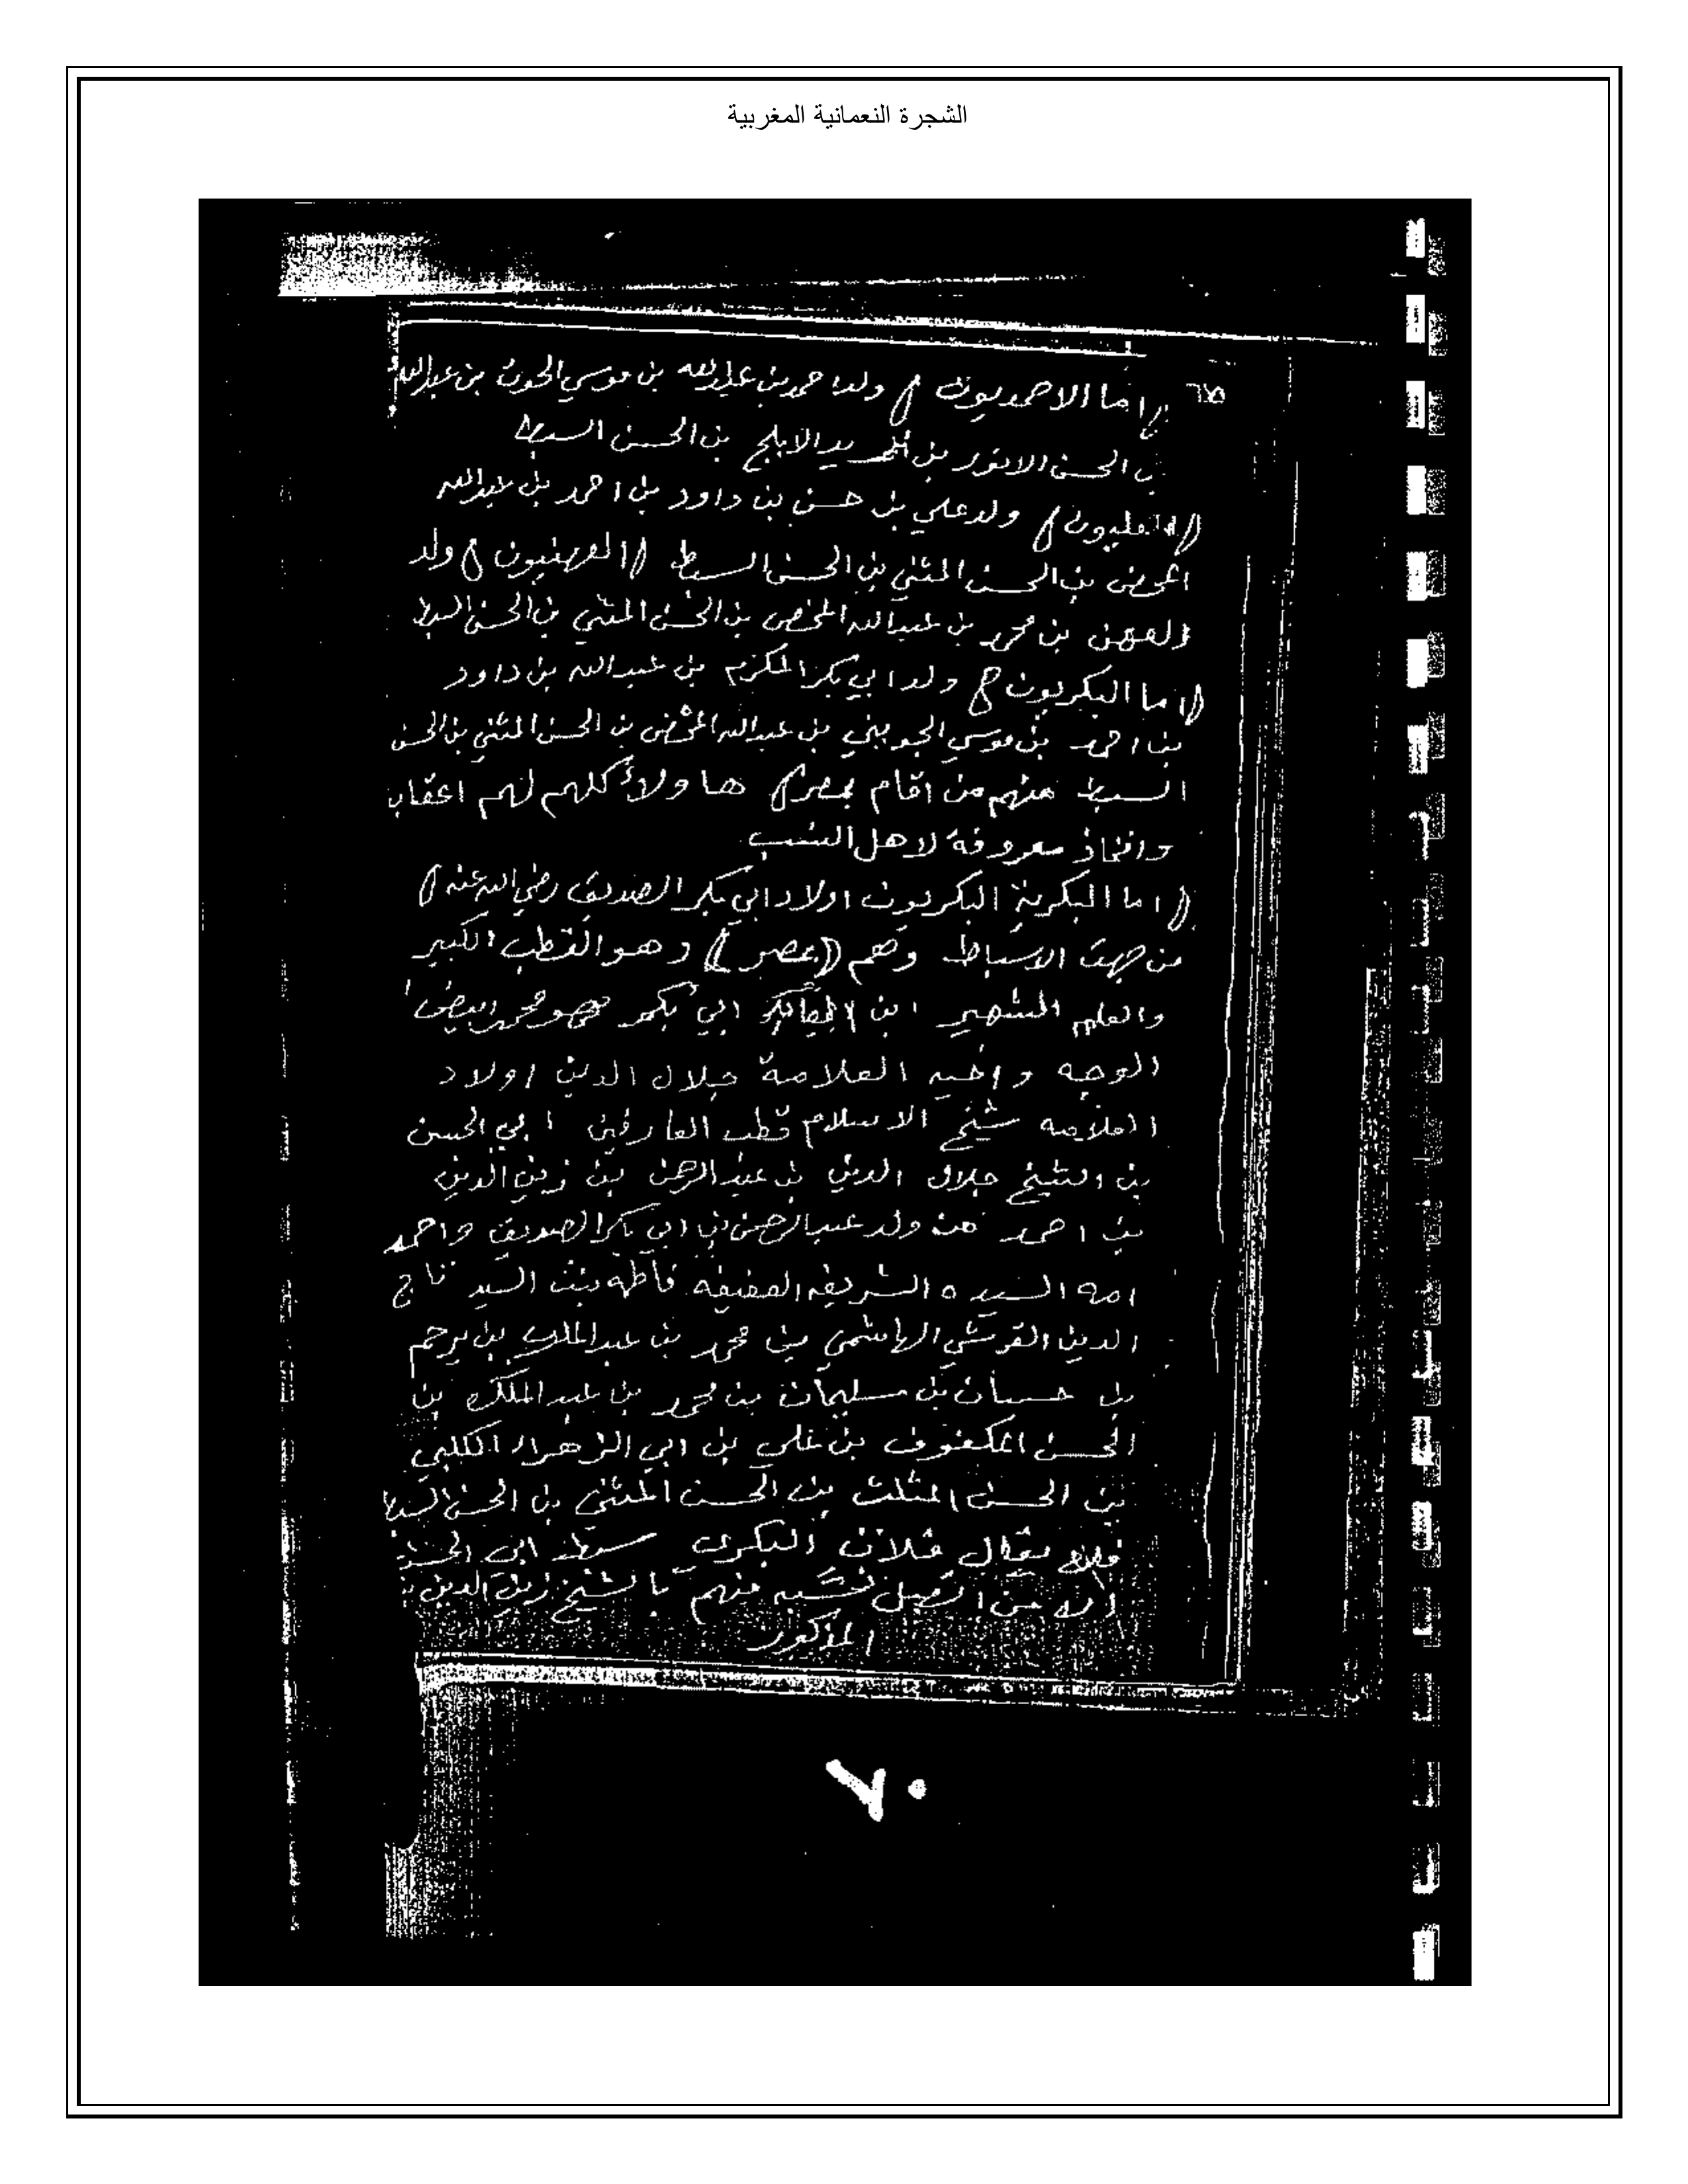 الشجرة النعمانية المغربية
(اما الاحمديون) ولد احمد بن عبدالله بن موسي الجون بن عبدالله
بن الحسن الانور بن زيد الابلج بن الحسن السبط
(العليون) ولد علي بن حسن بن داود بن احمد بن عبدالله
المحض بن الحسن المثني بن الحسن السبط (العهنيون) ولد
العهن بن محمد بن عبدالله المحض بن الحسن المثني بن الحسن السبط
(اما البكريون) ولد ابي بكر المكرم بن عبدالله بن داود
بن احمد بن موسي بن عبدالله المحض بن الحسن المثني بن الحسن
السبط منهم من اقام بمصر) هاولاء كلهم لهم اعقاب
وافخاذ معروفة لاهل النسب
(اما البكرية البكريون اولاد ابي بكر الصديق رضي الله عنه)
من جهت الاسباط وهم ((بمصر)) وهو القطب الكبير
والعلم الشهير ابن ابي بكر هو محمد ابيض
الوجه واخيه العلامة جلال الدين اولاد
العلامه شيخ الاسلام قطب العارفين ابي الحسن
بن الشيخ جلال الدين بن عبد الرحمن بن زين الدين
بن احمد من ولد عبدالرحمن بن ابي بكر الصديق واحمد
امه السيده الشريفه العفيفه فاطمه بنت السيد تاج
الدين القرشي الهاشمي بن محمد بن عبدالملك بن
بن حسان بن سليمان بن محمد بن عبدالملك بن
الحسن المكفوف بن علي بن ابي الزهراء الكلبي
بن الحسن المثلث بن الحسن المثني بن الحسن السبط
فلا يقال فلان البكري سبط ابن الحسن
الا من اتصل نسبه منهم بالشيخ زين الدين
المذكور
٧٠